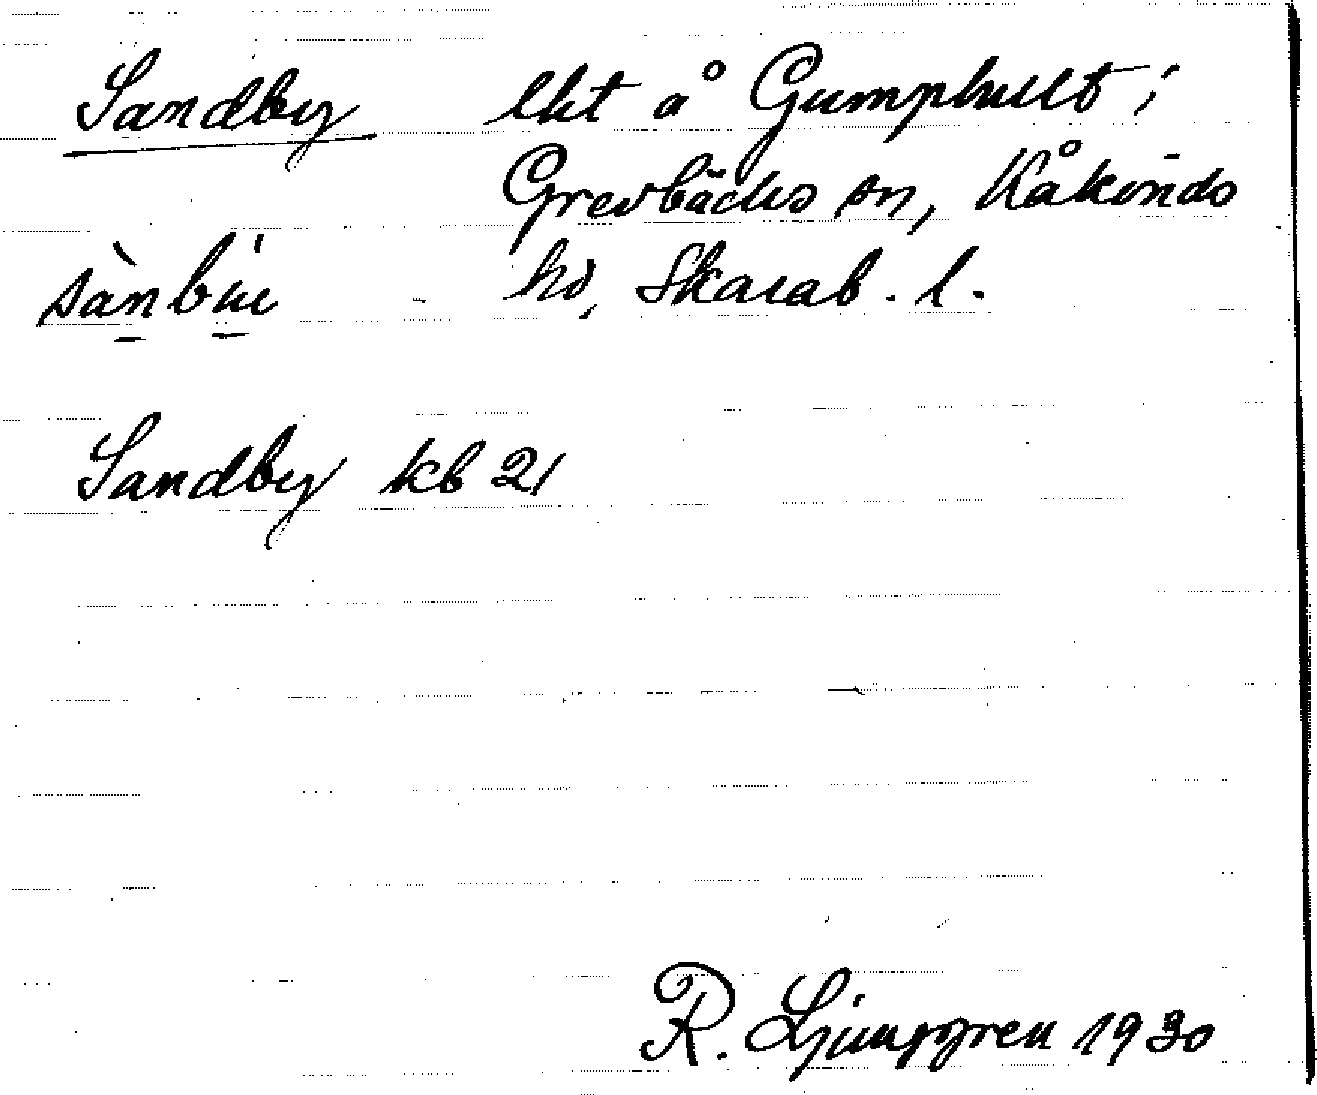 Sandby lht å Gumphult i
Grevbäcks sn, Kåkinds
hd, Skarab. l.
sànbỳ
Sandby kb 21
R. Ljunggren 1930